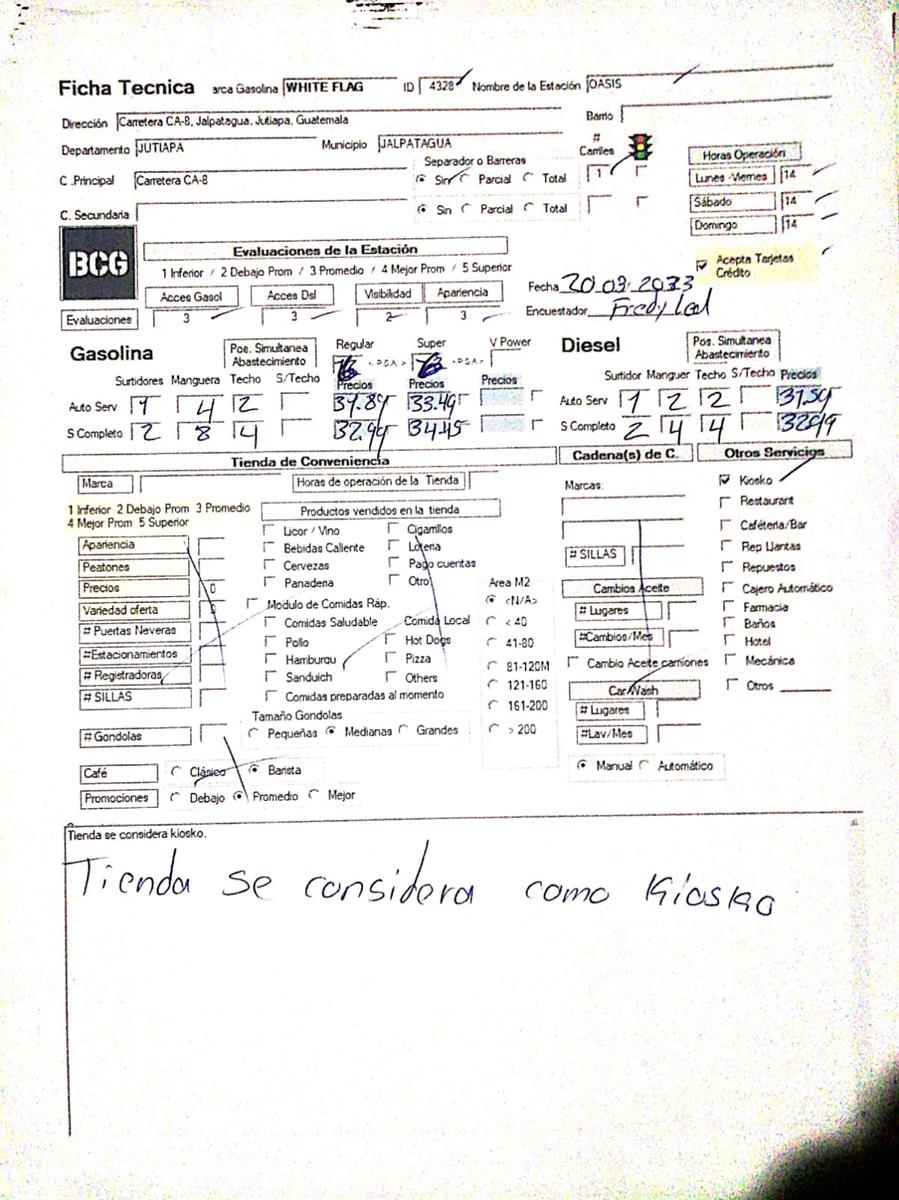 Ficha Tecnica arca Gasolina WHITE FLAG ID 4328 Nombre de la Estación OASIS
Dirección Carretera CA-8, Jalpatagua, Jutiapa, Guatemala Barrio
Departamento JUTIAPA Municipio JALPATAGUA # Carriles
Separador o Barreras Horas Operación
C .Principal Carretera CA-8 Sin Parcial Total 1 Lunes -Viernes 14
Sábado 14
C. Secundaria Sin Parcial Total Domingo 14
BCG Evaluaciones de la Estación
1 Inferior / 2 Debajo Prom / 3 Promedio / 4 Mejor Prom / 5 Superior
Acepta Tarjetas Crédito
Acces Gasol Acces Dsl Visibilidad Apariencia Fecha
Evaluaciones 3 3 2 3 Encuestador Fredy Leal
Gasolina Pos. Simultanea Abastecimiento Regular Super V Power Diesel Pos. Simultanea Abastecimiento
Surtidores Manguera Techo S/Techo Precios Precios Precios Surtidor Manguer Techo S/Techo Precios
Auto Serv 1 4 2 33.49 Auto Serv 1 2 2
S Completo 2 8 4 32.99 34.45 S Completo 2 4 4 32.99
Tienda de Conveniencia Cadena(s) de C. Otros Servicios
Marca Horas de operación de la Tienda Marcas: Kiosko
1 Inferior 2 Debajo Prom 3 Promedio Productos vendidos en la tienda Restaurant
4 Mejor Prom 5 Superior
Licor / Vino Cigarrillos Caféteria/Bar
Apariencia Bebidas Caliente Loteria # SILLAS Rep Llantas
Peatones Cervezas Pago cuentas Repuestos
Precios 0 Panadena Otro Area M2 Cambios Aceite Cajero Automático
Variedad oferta 0 Modulo de Comidas Ráp. <N/A> # Lugares Farmacia
# Puertas Neveras Comidas Saludable Comida Local < 40 Baños
#Estacionamientos Pollo Hot Dogs 41-80 #Cambios/Mes Hotel
# Registradoras Hamburqu Pizza 81-120M Cambio Aceite camiones Mecánica
# SILLAS Sanduich Others 121-160 Car Wash Otros
Comidas preparadas al momento 161-200 # Lugares
Tamaño Gondolas
# Gondolas Pequeñas Medianas Grandes > 200 #Lav/Mes
Café Clásico Barista Manual Automático
Promociones Debajo Promedio Mejor
Tienda se considera kiosko.
Tienda se considera como Kiosko